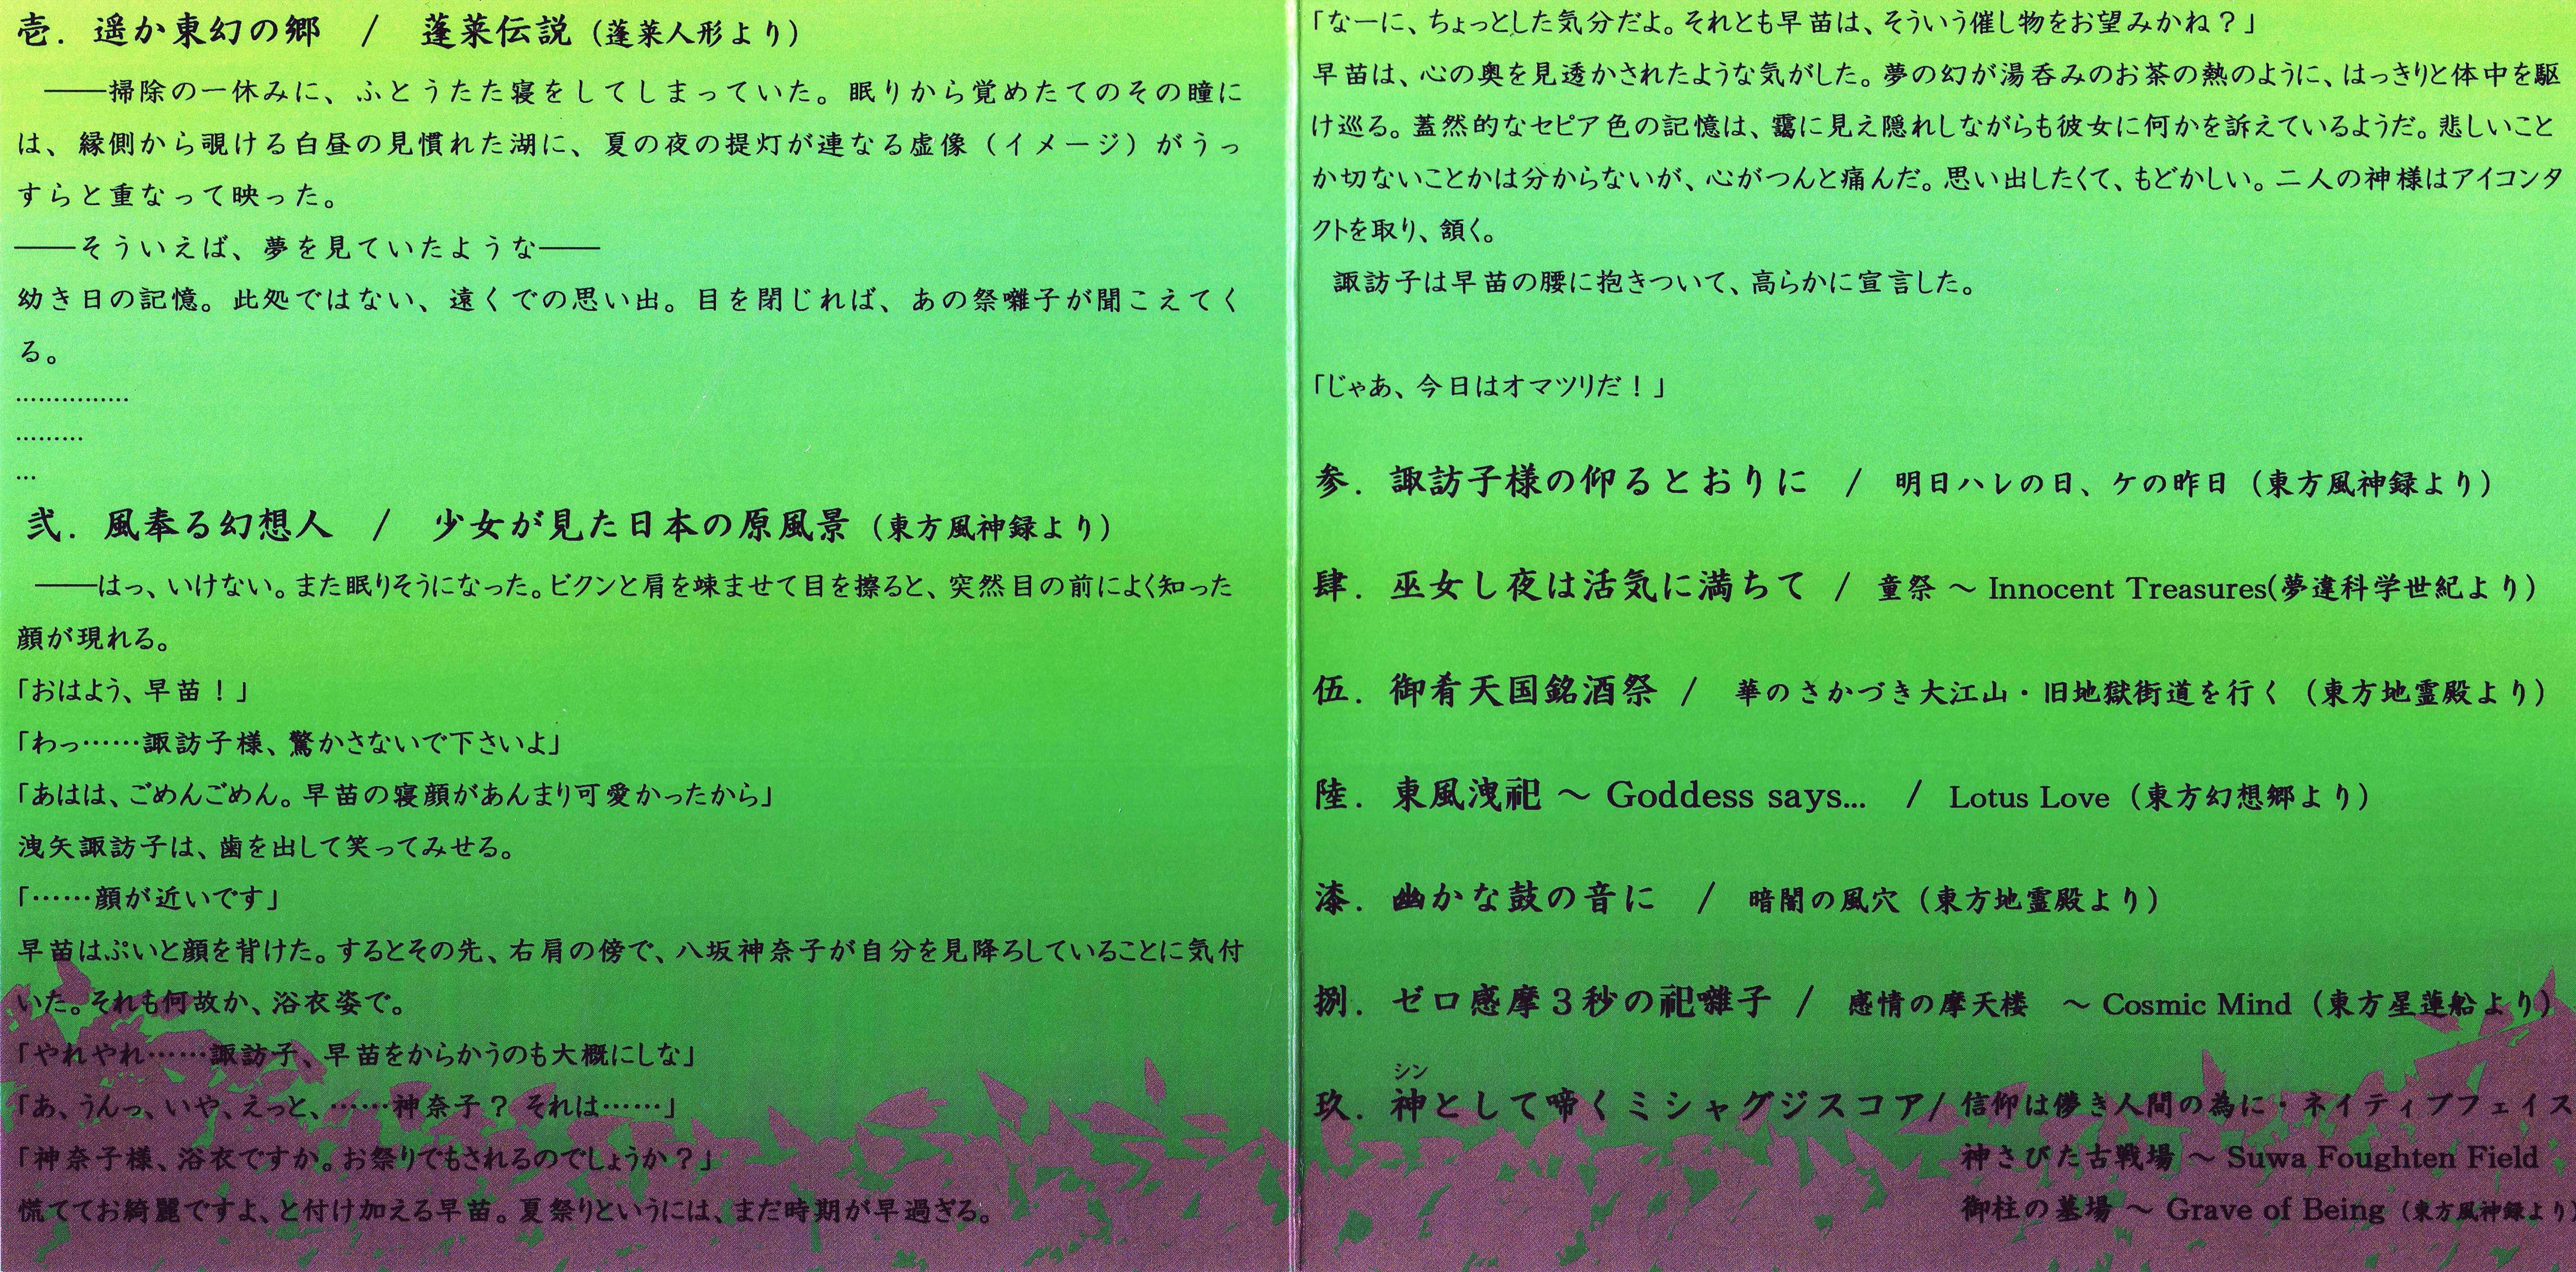 壱．遥か東幻の郷　/　蓬莱伝説（蓬莱人形より）
――掃除の一休みに、ふとうたた寝をしてしまっていた。眠りから覚めたてのその瞳に
は、縁側から覗ける白昼の見慣れた湖に、夏の夜の提灯が連なる虚像（イメージ）がうっ
すらと重なって映った。
――そういえば、夢を見ていたような――
幼き日の記憶。此処ではない、遠くでの思い出。目を閉じれば、あの祭囃子が聞こえてく
る。
……………
………
…
弐．風奉る幻想人　/　少女が見た日本の原風景（東方風神録より）
――はっ、いけない。また眠りそうになった。ビクンと肩を竦ませて目を擦ると、突然目の前によく知った
顔が現れる。
「おはよう、早苗！」
「わっ……諏訪子様、驚かさないで下さいよ」
「あはは、ごめんごめん。早苗の寝顔があんまり可愛かったから」
洩矢諏訪子は、歯を出して笑ってみせる。
「……顔が近いです」
早苗はぷいと顔を背けた。するとその先、右肩の傍で、八坂神奈子が自分を見降ろしていることに気付
いた。それも何故か、浴衣姿で。
「やれやれ……諏訪子、早苗をからかうのも大概にしな」
「あ、うんっ、いや、えっと、……神奈子？ それは……」
「神奈子様、浴衣ですか。お祭りでもされるのでしょうか？」
慌ててお綺麗ですよ、と付け加える早苗。夏祭りというには、まだ時期が早過ぎる。
「なーに、ちょっとした気分だよ。それとも早苗は、そういう催し物をお望みかね？」
早苗は、心の奥を見透かされたような気がした。夢の幻が湯呑みのお茶の熱のように、はっきりと体中を駆
け巡る。蓋然的なセピア色の記憶は、靄に見え隠れしながらも彼女に何かを訴えているようだ。悲しいこと
か切ないことかは分からないが、心がつんと痛んだ。思い出したくて、もどかしい。二人の神様はアイコンタ
クトを取り、頷く。
諏訪子は早苗の腰に抱きついて、高らかに宣言した。
「じゃあ、今日はオマツリだ！」
参．諏訪子様の仰るとおりに　/　明日ハレの日、ケの昨日（東方風神録より）
肆．巫女し夜は活気に満ちて　/　童祭 ～ Innocent Treasures(夢違科学世紀より）
伍．御肴天国銘酒祭　/　華のさかづき大江山・旧地獄街道を行く（東方地霊殿より）
陸．東風洩祀 ～ Goddess says...　/　Lotus Love（東方幻想郷より）
漆．幽かな鼓の音に　/　暗闇の風穴（東方地霊殿より）
捌．ゼロ感摩３秒の祀囃子　/　感情の摩天楼　～ Cosmic Mind（東方星蓮船より）
シン
玖．神として啼くミシャグジスコア/ 信仰は儚き人間の為に・ネイティブフェイス
神さびた古戦場 ～ Suwa Foughten Field
御柱の墓場 ～ Grave of Being（東方風神録より）